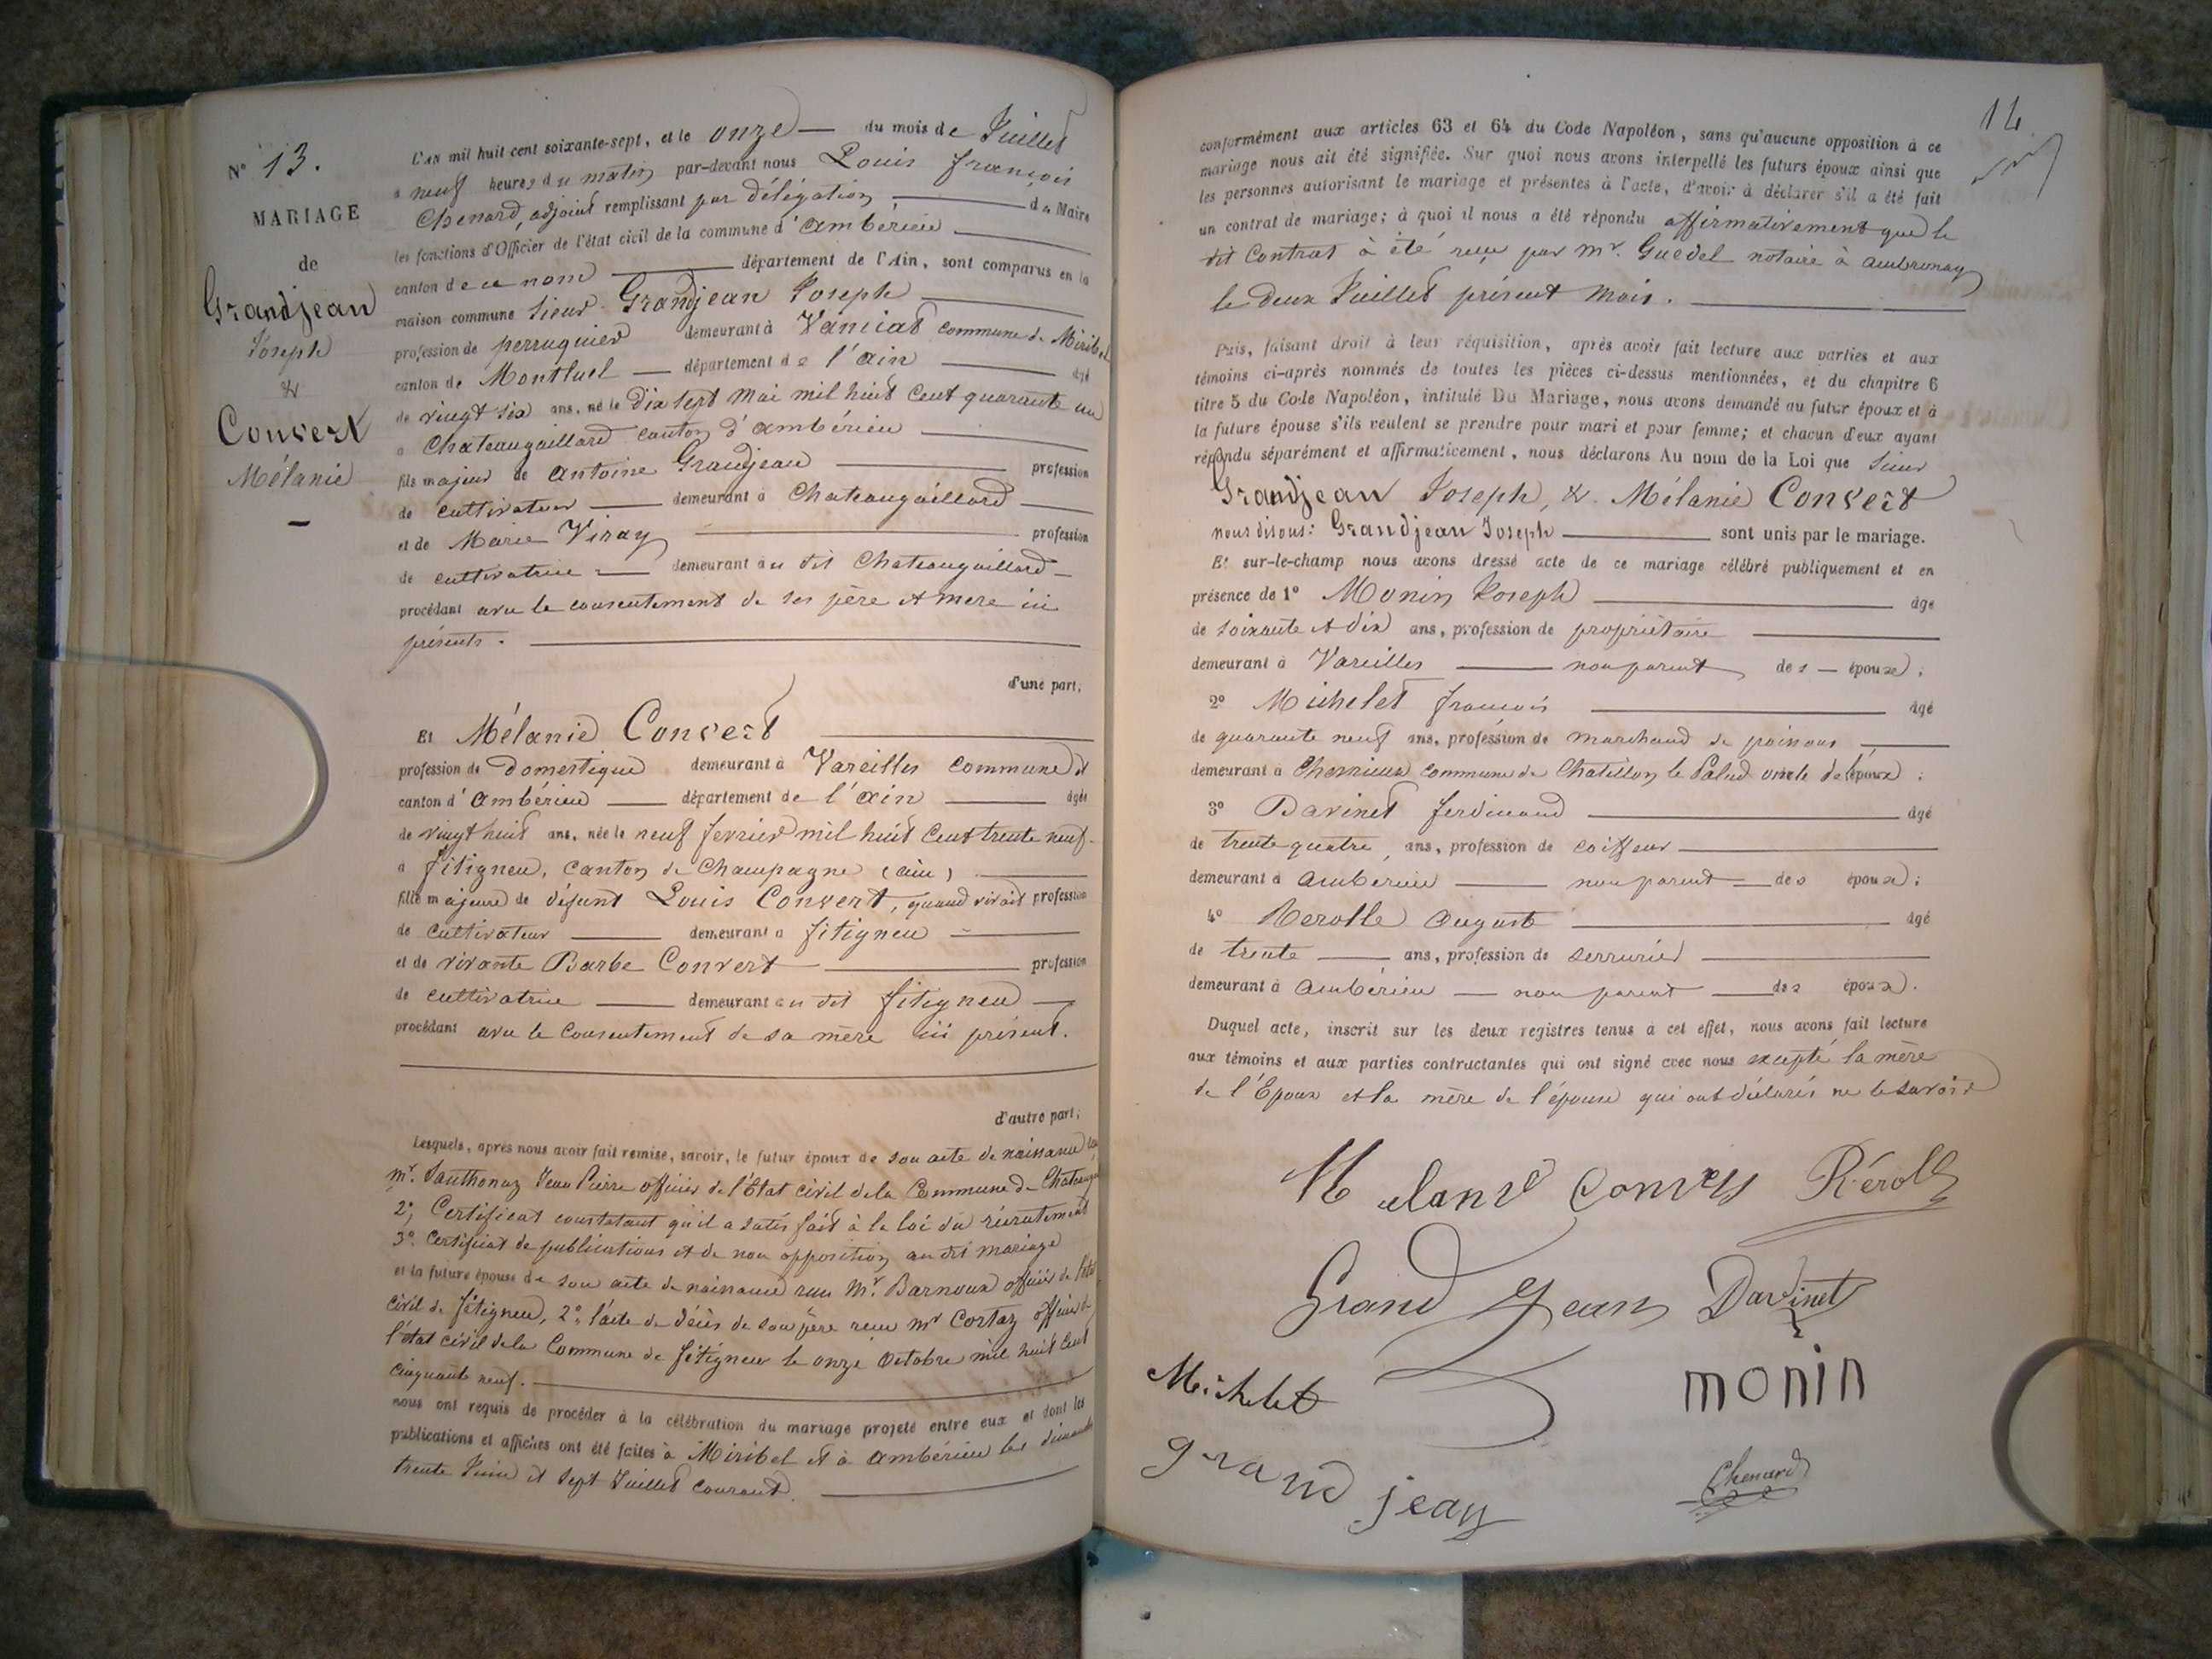 N° 13.
MARIAGE
de
Grandjean
Joseph
&
Convert
Mélanie
L'AN mil huit cent soixante-sept, et le onze du mois de Juillet
à neuf heures du matin par-devant nous Louis françois
Chenard, adjoint remplissant par délégation du Maire
les fonctions d'Officier de l'état civil de la commune d'ambérieu
canton de ce nom département de l'Ain, sont comparus en la
maison commune sieur Grandjean Joseph
profession de perruquier demeurant à Vanciat commune de Miribel
canton de Montluel département de l'ain âgé
de vingt six ans, né le dix sept Mai mil huit Cent quarante un
à Chateaugaillard canton d'ambérieu
fils majeur de antoine Grandjean profession
de cultivateur demeurant à Chateaugaillard
et de Marie Viray profession
de cultivatrice demeurant au dit Chateaugaillard
procédant avec le consentement de ses père et mere ici
présents.
d'une part;
Et Mélanie Convert
profession de domestique demeurant à Vareilles commune et
canton d'ambérieu département de l'ain âgée
de vingt huit ans, née le neuf fevrier mil huit Cent trente neuf
à fitigneu, canton de Champagne (ain)
fille majeure de défunt Louis Convert, quand vivait profession
de cultivateur demeurant à fitigneu
et de vivante Barbe Convert profession
de cultivatrice demeurant au dit fitigneu
procédant avec le Consentement de sa mère ici présent.
d'autre part;
Lesquels, après nous avoir fait remise, savoir, le futur époux de son acte de naissance
mr. Jean Pierre officier de l'État civil de la Commune de
2°, Certificat constatant qu'il a satisfait à la loi du récrutement
3°. Certificat de publications et de non opposition au dit mariage
et la future épouse de son acte de naissance reçu Mr Barnoux officier de l'état
civil de fitigneu, 2° l'acte de décès de son père reçu mr Cortaz officier de
l'état civil de la Commune de fitigneu le onze Octobre mil huit Cent
cinquante neuf.
nous ont requis de procéder à la célébration du mariage projeté entre eux et dont les
publications et affiches ont été faites à Miribel et à ambérieu les dimanches
trente Juin et sept Juillet courant.
14
conformément aux articles 63 et 64 du Code Napoléon, sans qu'aucune opposition à ce
mariage nous ait été signifiée. Sur quoi nous avons interpellé les futurs époux ainsi que
les personnes autorisant le mariage et présentes à l'acte, d'avoir à déclarer s'il a été fait
un contrat de mariage; à quoi il nous a été répondu affirmativement que le
dit Contrat à été reçu par mr. Guedel notaire à ambronay
le deux Juillet présent mois.
Puis, faisant droit à leur réquisition, après avoir fait lecture aux parties et aux
témoins ci-après nommés de toutes les pièces ci-dessus mentionnées, et du chapitre 6
titre 5 du Code Napoléon, intitulé Du Mariage, nous avons demandé au futur époux et à
la future épouse s'ils veulent se prendre pour mari et pour femme; et chacun d'eux ayant
répondu séparément et affirmativement, nous déclarons Au nom de la Loi que sieur
Grandjean Joseph, & Mélanie Convert
nous disons: Grandjean Joseph sont unis par le mariage.
Et sur-le-champ nous avons dressé acte de ce mariage célébré publiquement et en
présence de 1° Monin Joseph âgé
de soixante et dix ans, profession de propriétaire
demeurant à Vareilles non parent des époux;
2° Michelet françois âgé
de quarante neuf ans, profession de marchand de poissons
demeurant à commune de Chatillon la Palud oncle de l'époux;
3° Davinet ferdinand âgé
de trente quatre ans, profession de coiffeur
demeurant à ambérieu non parent des époux;
4° Rerolle auguste âgé
de trente ans, profession de serrurier
demeurant à ambérieu non parent des époux.
Duquel acte, inscrit sur les deux registres tenus à cet effet, nous avons fait lecture
aux témoins et aux parties contractantes qui ont signé avec nous excepté la mère
de l'Epoux et la mère de l'épouse qui ont déclarés ne le savoir
Melanie Convert Rérolle
Grand Jean Davinet
Michelet monin
grand jean Chenard